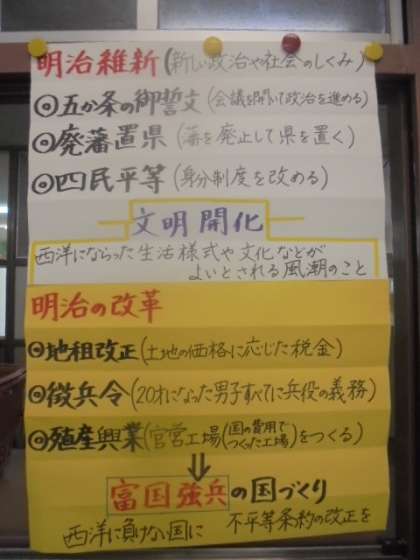 明治維新(新しい政治や社会のしくみ)
◎五か条の御誓文(会議を開いて政治を進める)
◎廃藩置県(藩を廃止して県を置く)
◎四民平等(身分制度を改める)
文明開化
西洋にならった生活様式や文化などが
よいとされる風潮のこと
明治の改革
◎地租改正(土地の価格に応じた税金)
◎徴兵令(20才になった男子すべてに兵役の義務)
◎殖産興業(官営工場(国の費用でつくった工場)をつくる)
⇓
富国強兵の国づくり
西洋に負けない国に 不平等条約の改正を